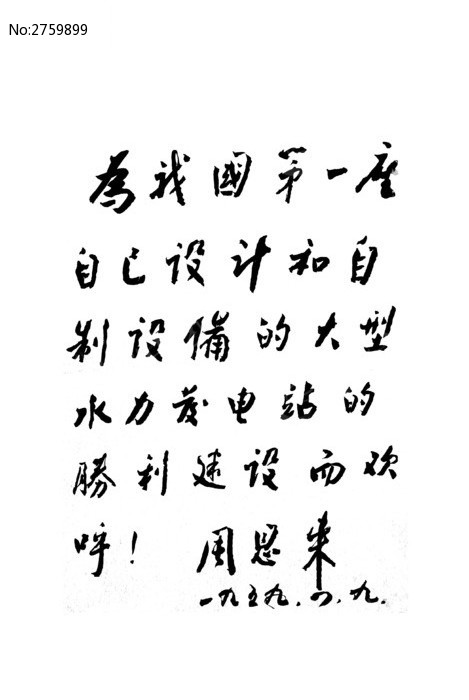 No:2759899
為我國第一座
自己设计和自
制设備的大型
水力发电站的
勝利建设而欢
呼！ 周恩来
一九五九.四.九.